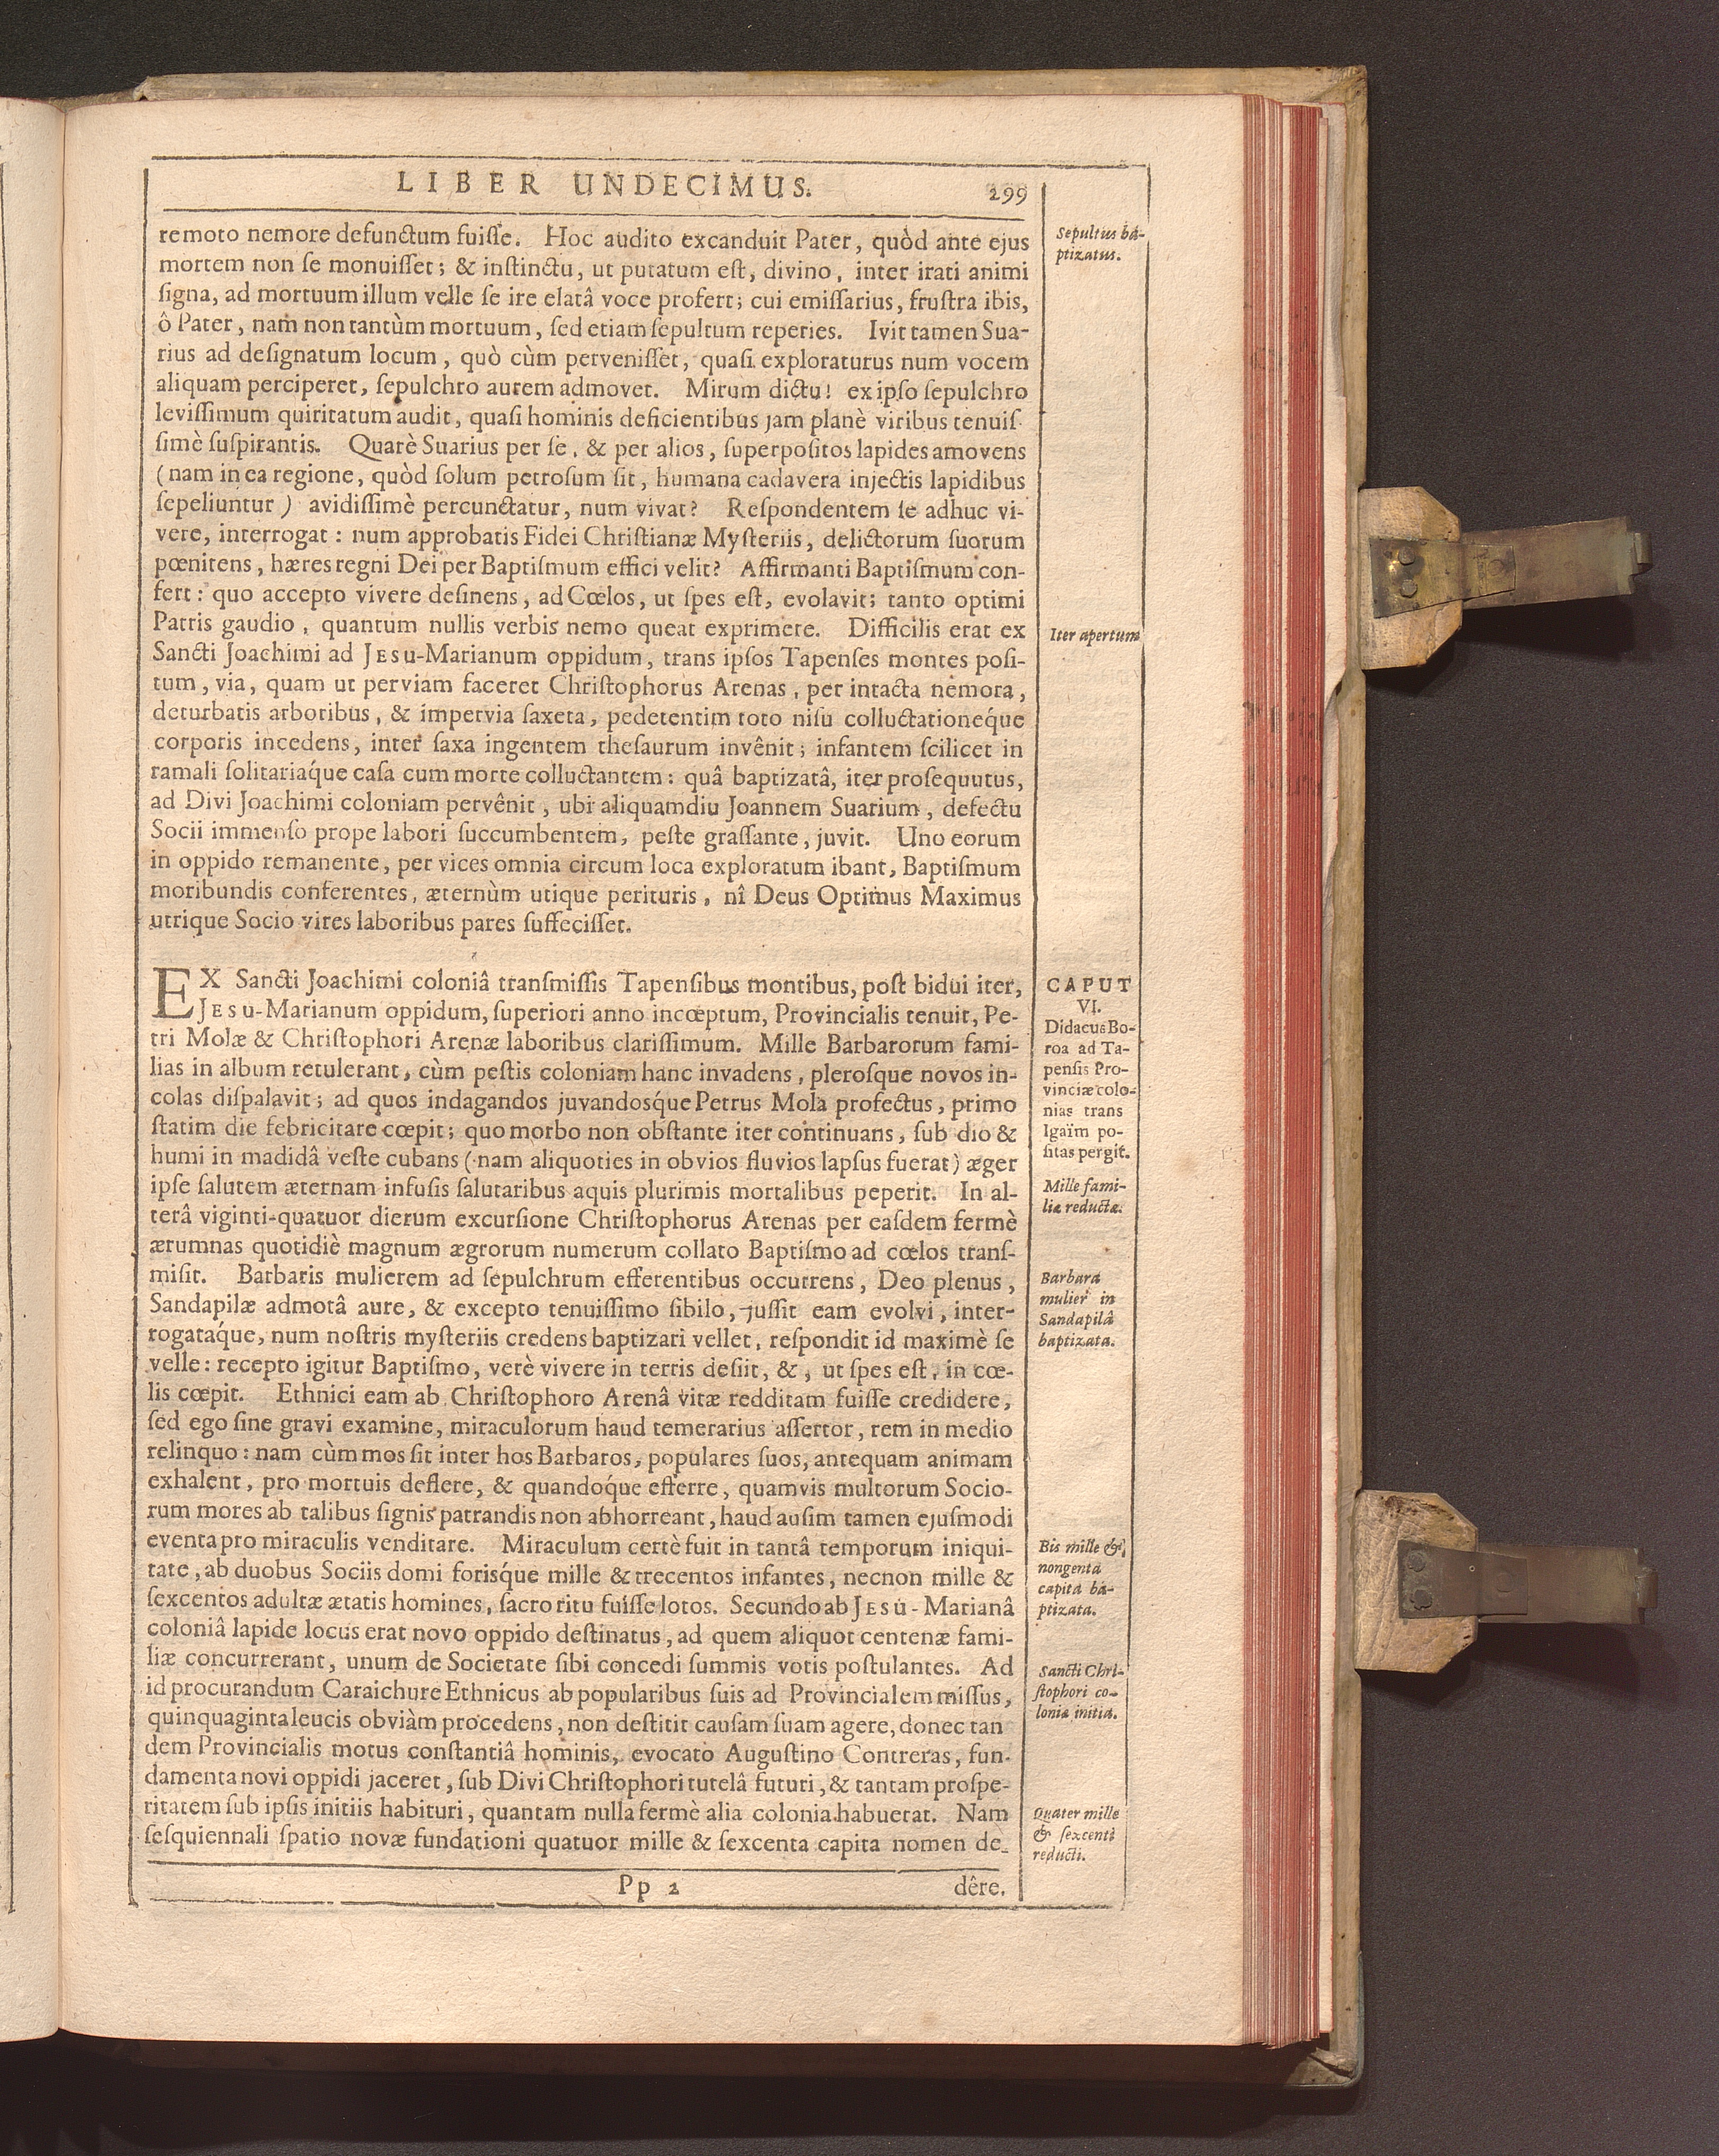 LIBER UNDECIMUS. 299
remoto nemore defunctum fuiſſe. Hoc audito excanduit Pater, quòd ante ejus
mortem non ſe monuiſſet; & inſtinctu, ut putatum eſt, divino, inter irati animi
ſigna, ad mortuum illum velle ſe ire elatâ voce profert; cui emiſſarius, fruſtra ibis,
ô Pater, nam non tantùm mortuum, ſed etiam ſepultum reperies. Ivit tamen Sua-
rius ad deſignatum locum, quò cùm perveniſſet, quaſi exploraturus num vocem
aliquam perciperet, ſepulchro aurem admovet. Mirum dictu! ex ipſo ſepulchro
leviſſimum quiritatum audit, quaſi hominis deficientibus jam planè viribus tenuiſ-
ſimè ſuſpirantis. Quarè Suarius per ſe, & per alios, ſuperpoſitos lapides amovens
(nam in ea regione, quòd ſolum petroſum ſit, humana cadavera injectis lapidibus
ſepeliuntur) avidiſſimè percunctatur, num vivat? Reſpondentem ſe adhuc vi-
vere, interrogat: num approbatis Fidei Chriſtianæ Myſteriis, delictorum ſuorum
pœnitens, hæres regni Dei per Baptiſmum effici velit? Affirmanti Baptiſmum con-
fert: quo accepto vivere deſinens, ad Cœlos, ut ſpes eſt, evolavit; tanto optimi
Patris gaudio, quantum nullis verbis nemo queat exprimere. Difficilis erat ex
Sancti Joachimi ad JESU-Marianum oppidum, trans ipſos Tapenſes montes poſi-
tum, via, quam ut perviam faceret Chriſtophorus Arenas, per intacta nemora,
deturbatis arboribus, & impervia ſaxeta, pedetentim toto niſu colluctationeq́ue
corporis incedens, inter ſaxa ingentem theſaurum invênit; infantem ſcilicet in
ramali ſolitariaq́ue caſa cum morte colluctantem: quâ baptizatâ, iter proſequutus,
ad Divi Joachimi coloniam pervênit, ubi aliquamdiu Joannem Suarium, defectu
Socii immenſo prope labori ſuccumbentem, peſte graſſante, juvit. Uno eorum
in oppido remanente, per vices omnia circum loca exploratum ibant, Baptiſmum
moribundis conferentes, æternùm utique perituris, nî Deus Optimus Maximus
utrique Socio vires laboribus pares ſuffeciſſet.
EX Sancti Joachimi coloniâ tranſmiſſis Tapenſibus montibus, poſt bidui iter,
JESU-Marianum oppidum, ſuperiori anno incœptum, Provincialis tenuit, Pe-
tri Molæ & Chriſtophori Arenæ laboribus clariſſimum. Mille Barbarorum fami-
lias in album retulerant, cùm peſtis coloniam hanc invadens, pleroſque novos in-
colas diſpalavit; ad quos indagandos juvandoſq́ue Petrus Mola profectus, primo
ſtatim die febricitare cœpit; quo morbo non obſtante iter continuans, ſub dio &
humi in madidâ veſte cubans (nam aliquoties in obvios fluvios lapſus fuerat) æger
ipſe ſalutem æternam infuſis ſalutaribus aquis plurimis mortalibus peperit. In al-
terâ viginti-quatuor dierum excurſione Chriſtophorus Arenas per eaſdem fermè
ærumnas quotidiè magnum ægrorum numerum collato Baptiſmo ad cœlos tranſ-
miſit. Barbaris mulierem ad ſepulchrum efferentibus occurrens, Deo plenus,
Sandapilæ admotâ aure, & excepto tenuiſſimo ſibilo, juſſit eam evolvi, inter-
rogataq́ue, num noſtris myſteriis credens baptizari vellet, reſpondit id maximè ſe
velle: recepto igitur Baptiſmo, verè vivere in terris deſiit, &, ut ſpes eſt, in cœ-
lis cœpit. Ethnici eam ab Chriſtophoro Arenâ vitæ redditam fuiſſe credidere,
ſed ego ſine gravi examine, miraculorum haud temerarius aſſertor, rem in medio
relinquo: nam cùm mos ſit inter hos Barbaros, populares ſuos, antequam animam
exhalent, pro mortuis deflere, & quandoq́ue efferre, quamvis multorum Socio-
rum mores ab talibus ſignis patrandis non abhorreant, haud auſim tamen ejuſmodi
eventa pro miraculis venditare. Miraculum certè fuit in tantâ temporum iniqui-
tate, ab duobus Sociis domi foriſq́ue mille & trecentos infantes, necnon mille &
ſexcentos adultæ ætatis homines, ſacro ritu fuiſſe lotos. Secundo ab JESU-Marianâ
coloniâ lapide locus erat novo oppido deſtinatus, ad quem aliquot centenæ fami-
liæ concurrerant, unum de Societate ſibi concedi ſummis votis poſtulantes. Ad
id procurandum Caraichure Ethnicus ab popularibus ſuis ad Provincialem miſſus,
quinquaginta leucis obviàm procedens, non deſtitit cauſam ſuam agere, donec tan
dem Provincialis motus conſtantiâ hominis, evocato Auguſtino Contreras, fun-
damenta novi oppidi jaceret, ſub Divi Chriſtophori tutelâ futuri, & tantam proſpe-
ritatem ſub ipſis initiis habituri, quantam nulla fermè alia colonia habuerat. Nam
ſeſquiennali ſpatio novæ fundationi quatuor mille & ſexcenta capita nomen de-
Pp 2 dêre.
Sepultus ba-
ptizatus.
Iter apertum
CAPUT
VI.
Didacus Bo-
roa ad Ta-
penſis Pro-
vinciæ colo-
nias trans
Igaïm po-
ſitas pergit.
Mille fami-
liæ reductæ.
Barbara
mulier in
Sandapilâ
baptizata.
Bis mille &
nongenta
capita ba-
ptizata.
Sancti Chri-
ſtophori co-
lonia initia.
Quater mille
& ſexcenti
reducti.